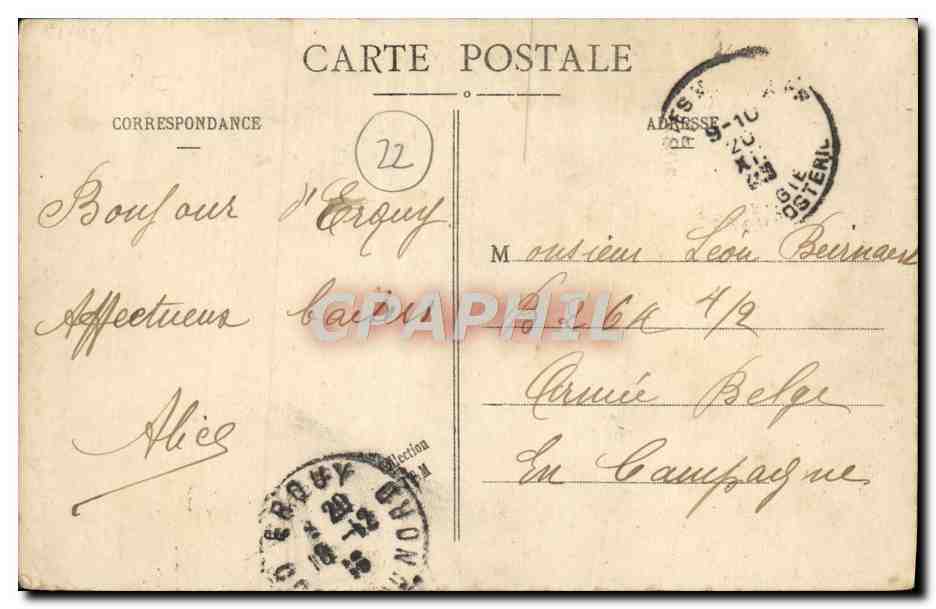 CARTE POSTALE
CORRESPONDANCE
ADRESSE
22
9-10
20
XI
Bonjour d'Erquy
Affectueux baisers
Alice
Monsieur Léon
4/2
Armée Belge
En Campagne
CPAPHIL
ERQUY
20
NORD